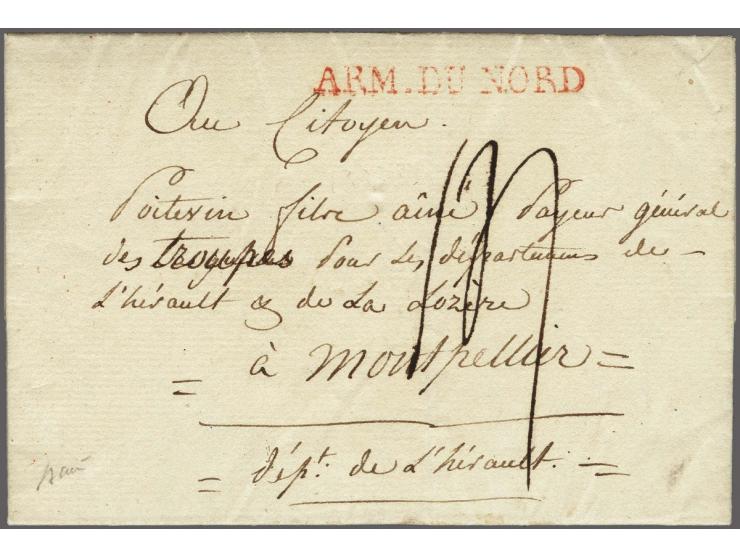 ARM. DU NORD
Au Citoyen.
Poitevin fils aîné Payeur général
des troupes pour les départemens de
L'hérault & de La Lozère
à Montpellier =
= dépt. de L'hérault. =